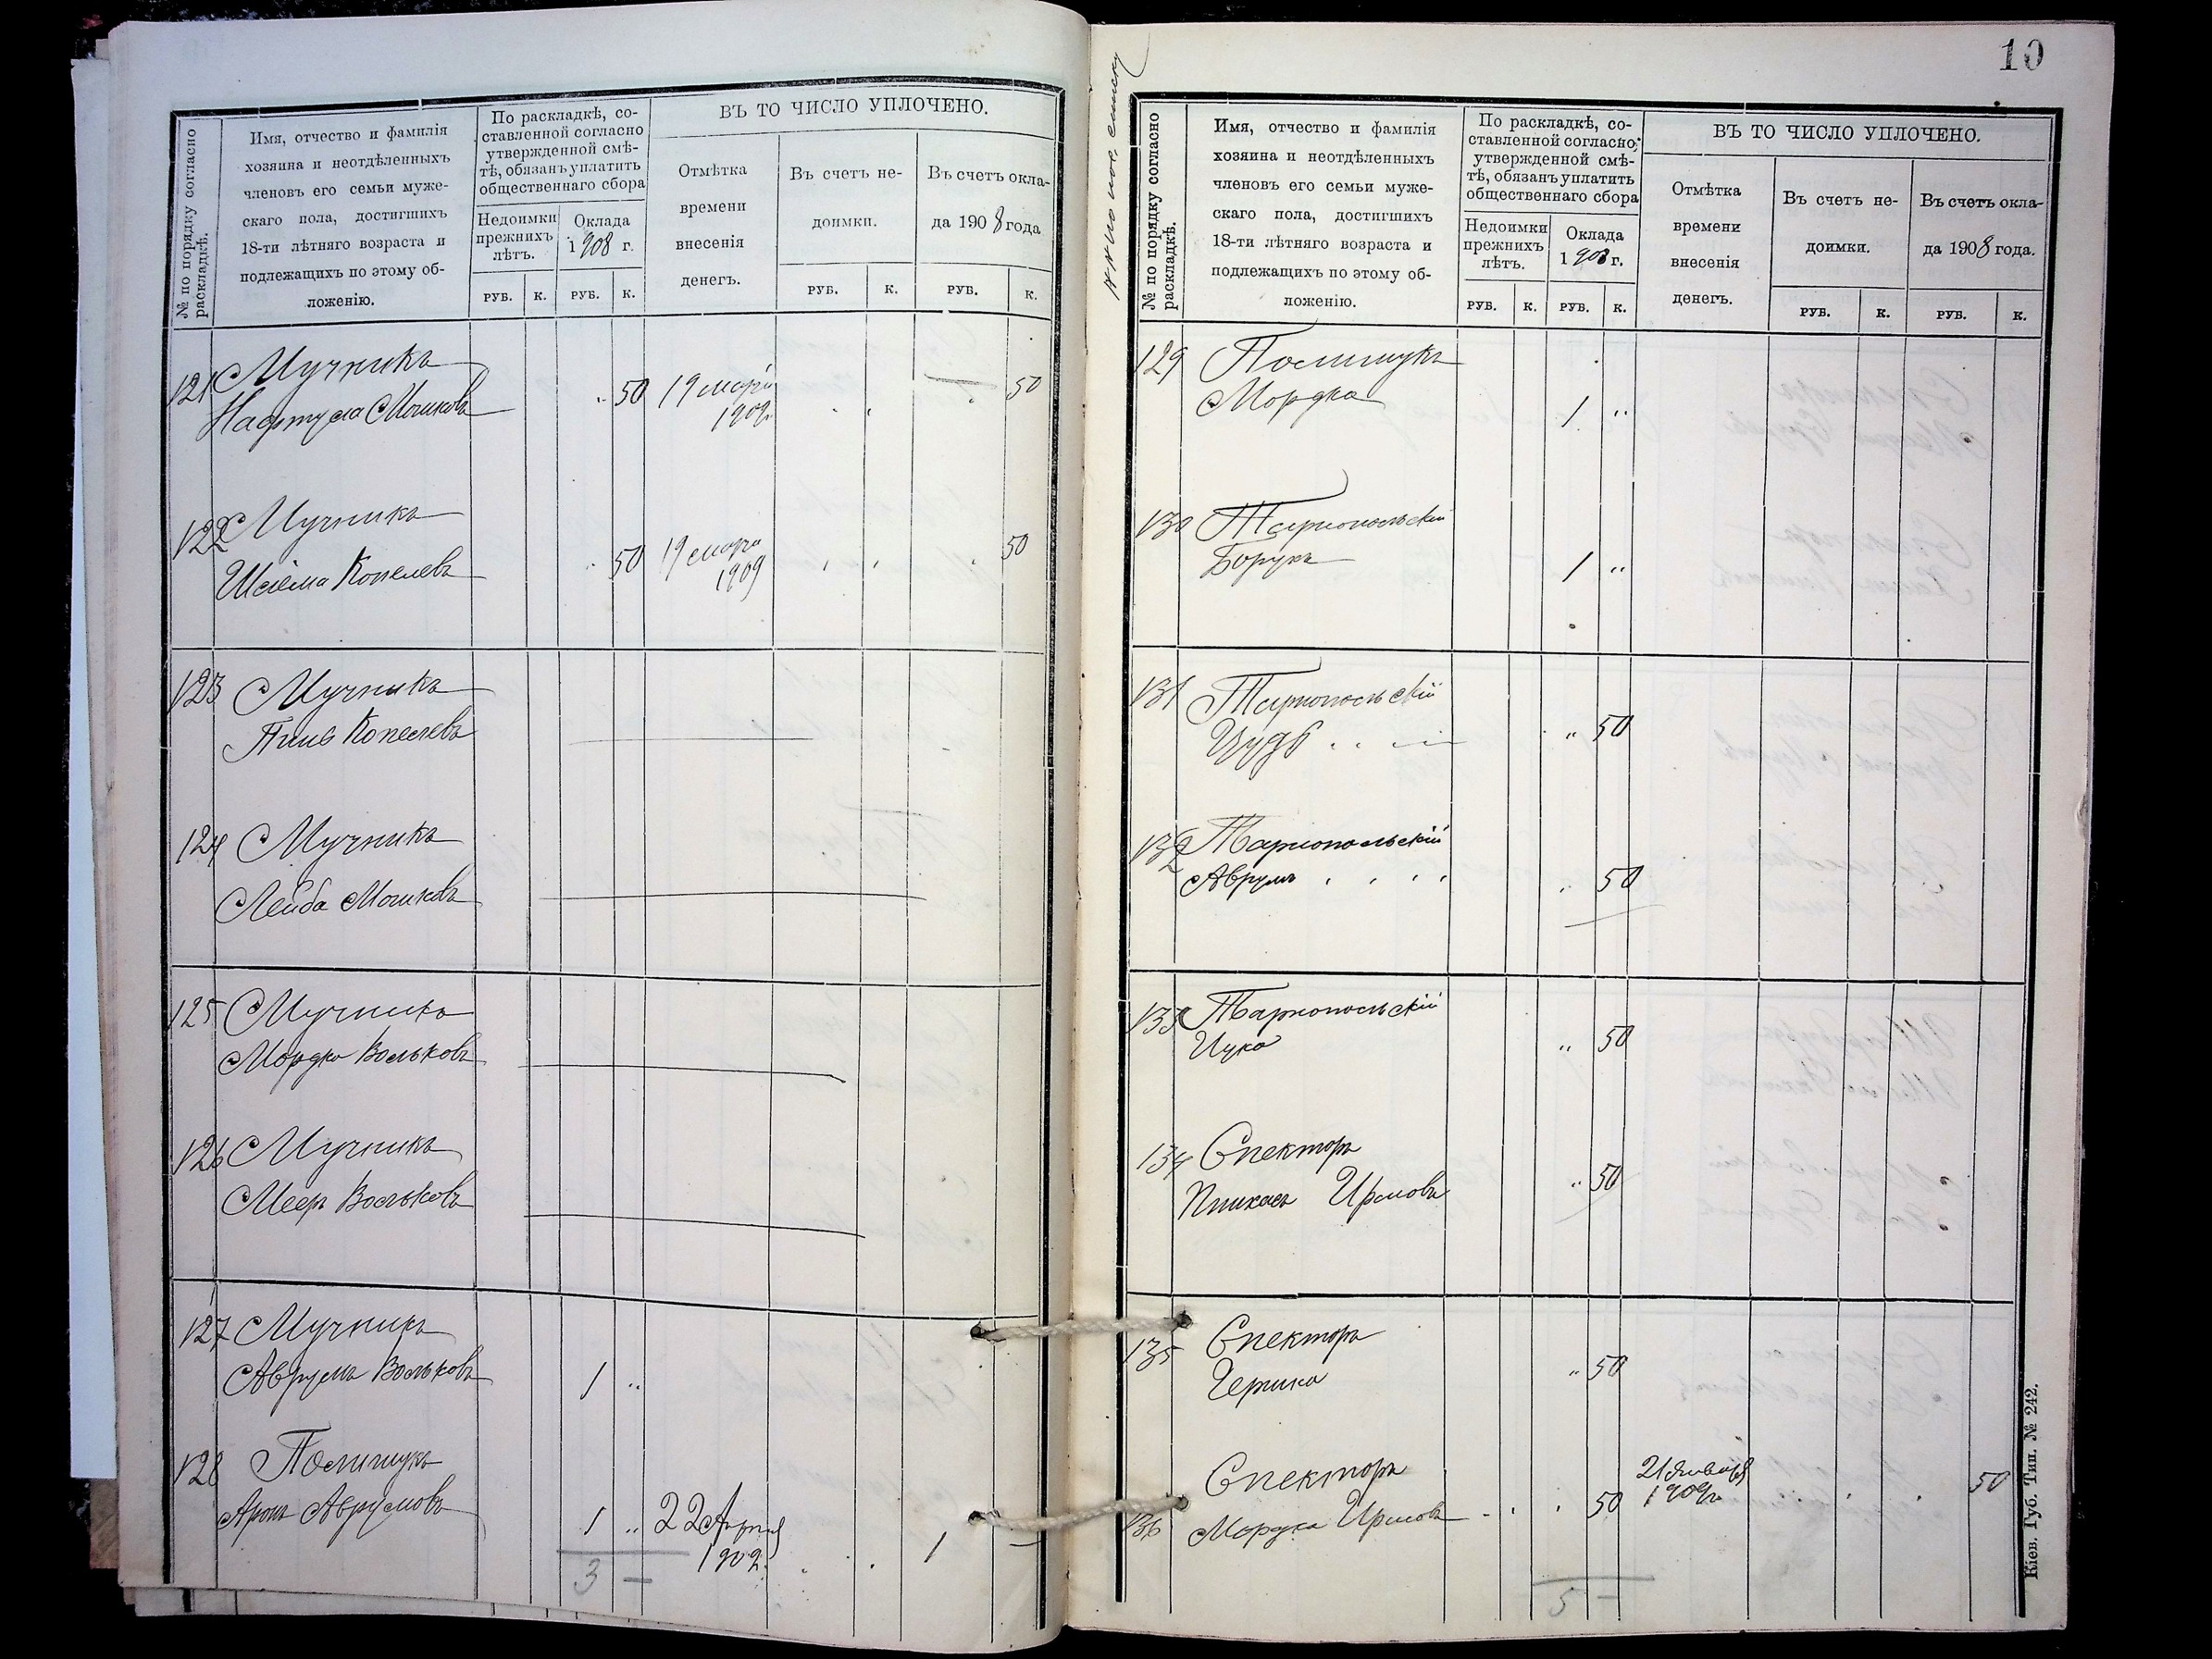 № по порядку согласно
раскладкѣ.
Имя, отчество и фамилія
хозяина и неотдѣленныхъ
членовъ его семьи муже-
скаго пола, достигшихъ
18-ти лѣтняго возраста и
подлежащихъ по этому об-
ложенію.
По раскладкѣ, со-
ставленной согласно
утвержденной смѣ-
тѣ, обязанъ уплатить
общественнаго сбора
Недоимки
прежнихъ
лѣтъ.
Оклада
1908 г.
РУБ. К. РУБ. К.
ВЪ ТО ЧИСЛО УПЛОЧЕНО.
Отмѣтка
времени
внесенія
денегъ.
Въ счетъ не-
доимки.
РУБ. К.
Въ счетъ окла-
да 1908 года
РУБ. К.
121 Мучникъ
Нафтула Мошковъ 50 19 марта 50
1909г.
122 Мучникъ
Шлёма Копелевъ 50 19 марта 50
1909
123 Мучникъ
Копелевъ
124 Мучникъ
Лейба Мошковъ
125 Мучникъ
Мордко Вольковъ
126 Мучникъ
Меер Вольковъ
127 Мучникъ
Аврумъ Вольковъ 1 "
128 Полищукъ
Аронъ Аврумовъ 1 " 22 Апрля 1 —
1909г.
3 —
10
№ по порядку согласно
раскладкѣ.
Имя, отчество и фамилія
хозяина и неотдѣленныхъ
членовъ его семьи муже-
скаго пола, достигшихъ
18-ти лѣтняго возраста и
подлежащихъ по этому об-
ложенію.
По раскладкѣ, со-
ставленной согласно
утвержденной смѣ-
тѣ, обязанъ уплатить
общественнаго сбора
Недоимки
прежнихъ
лѣтъ.
Оклада
1908 г.
РУБ. К. РУБ. К.
ВЪ ТО ЧИСЛО УПЛОЧЕНО.
Отмѣтка
времени
внесенія
денегъ.
Въ счетъ не-
доимки.
РУБ. К.
Въ счетъ окла-
да 1908 года.
РУБ. К.
129 Полищукъ
Мордко 1 "
130 Тарнопольскій
Борухъ 1 "
131 Тарнопольскій
" 50
132 Тарнопольскій
Аврумъ " 50
133 Тарнопольскій
Ицко " 50
134 Спекторъ
Пинхасъ Ирмовъ " 50
135 Спекторъ
Гершко " 50
Спекторъ 21 Января
136 Мордко Ирмовъ 50 1909г. 50
5 —
Кіев. Губ. Тип. № 242.